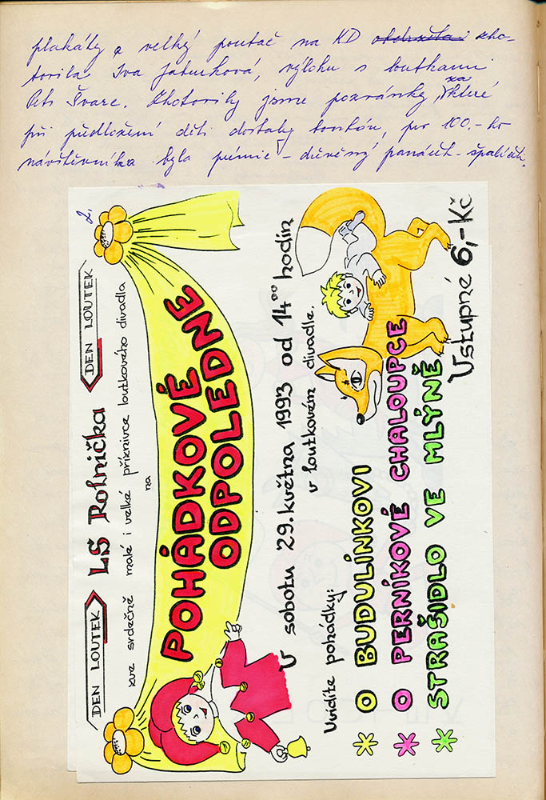 plakáty a velký poutač na KD zho-
tovila Iva Jaturková, výlohu s loutkami
Petr Švarc. Zhotovily jsme pozvánky, za které
při předložení děti dostaly bonbón, pro 100.-ho
návštěvníka byla prémie - dřevěný panáček - špalíček.
2.
DEN LOUTEK LŠ Rolnička DEN LOUTEK
zve srdečně malé i velké příznivce loutkového divadla
na
POHÁDKOVÉ
ODPOLEDNE
V sobotu 29. května 1993 od 14⁰⁰ hodin
v loutkovém divadle.
Uvidíte pohádky:
O BUDULÍNKOVI
O PERNÍKOVÉ CHALOUPCE
STRAŠIDLO VE MLÝNĚ
Vstupné 6,-Kč